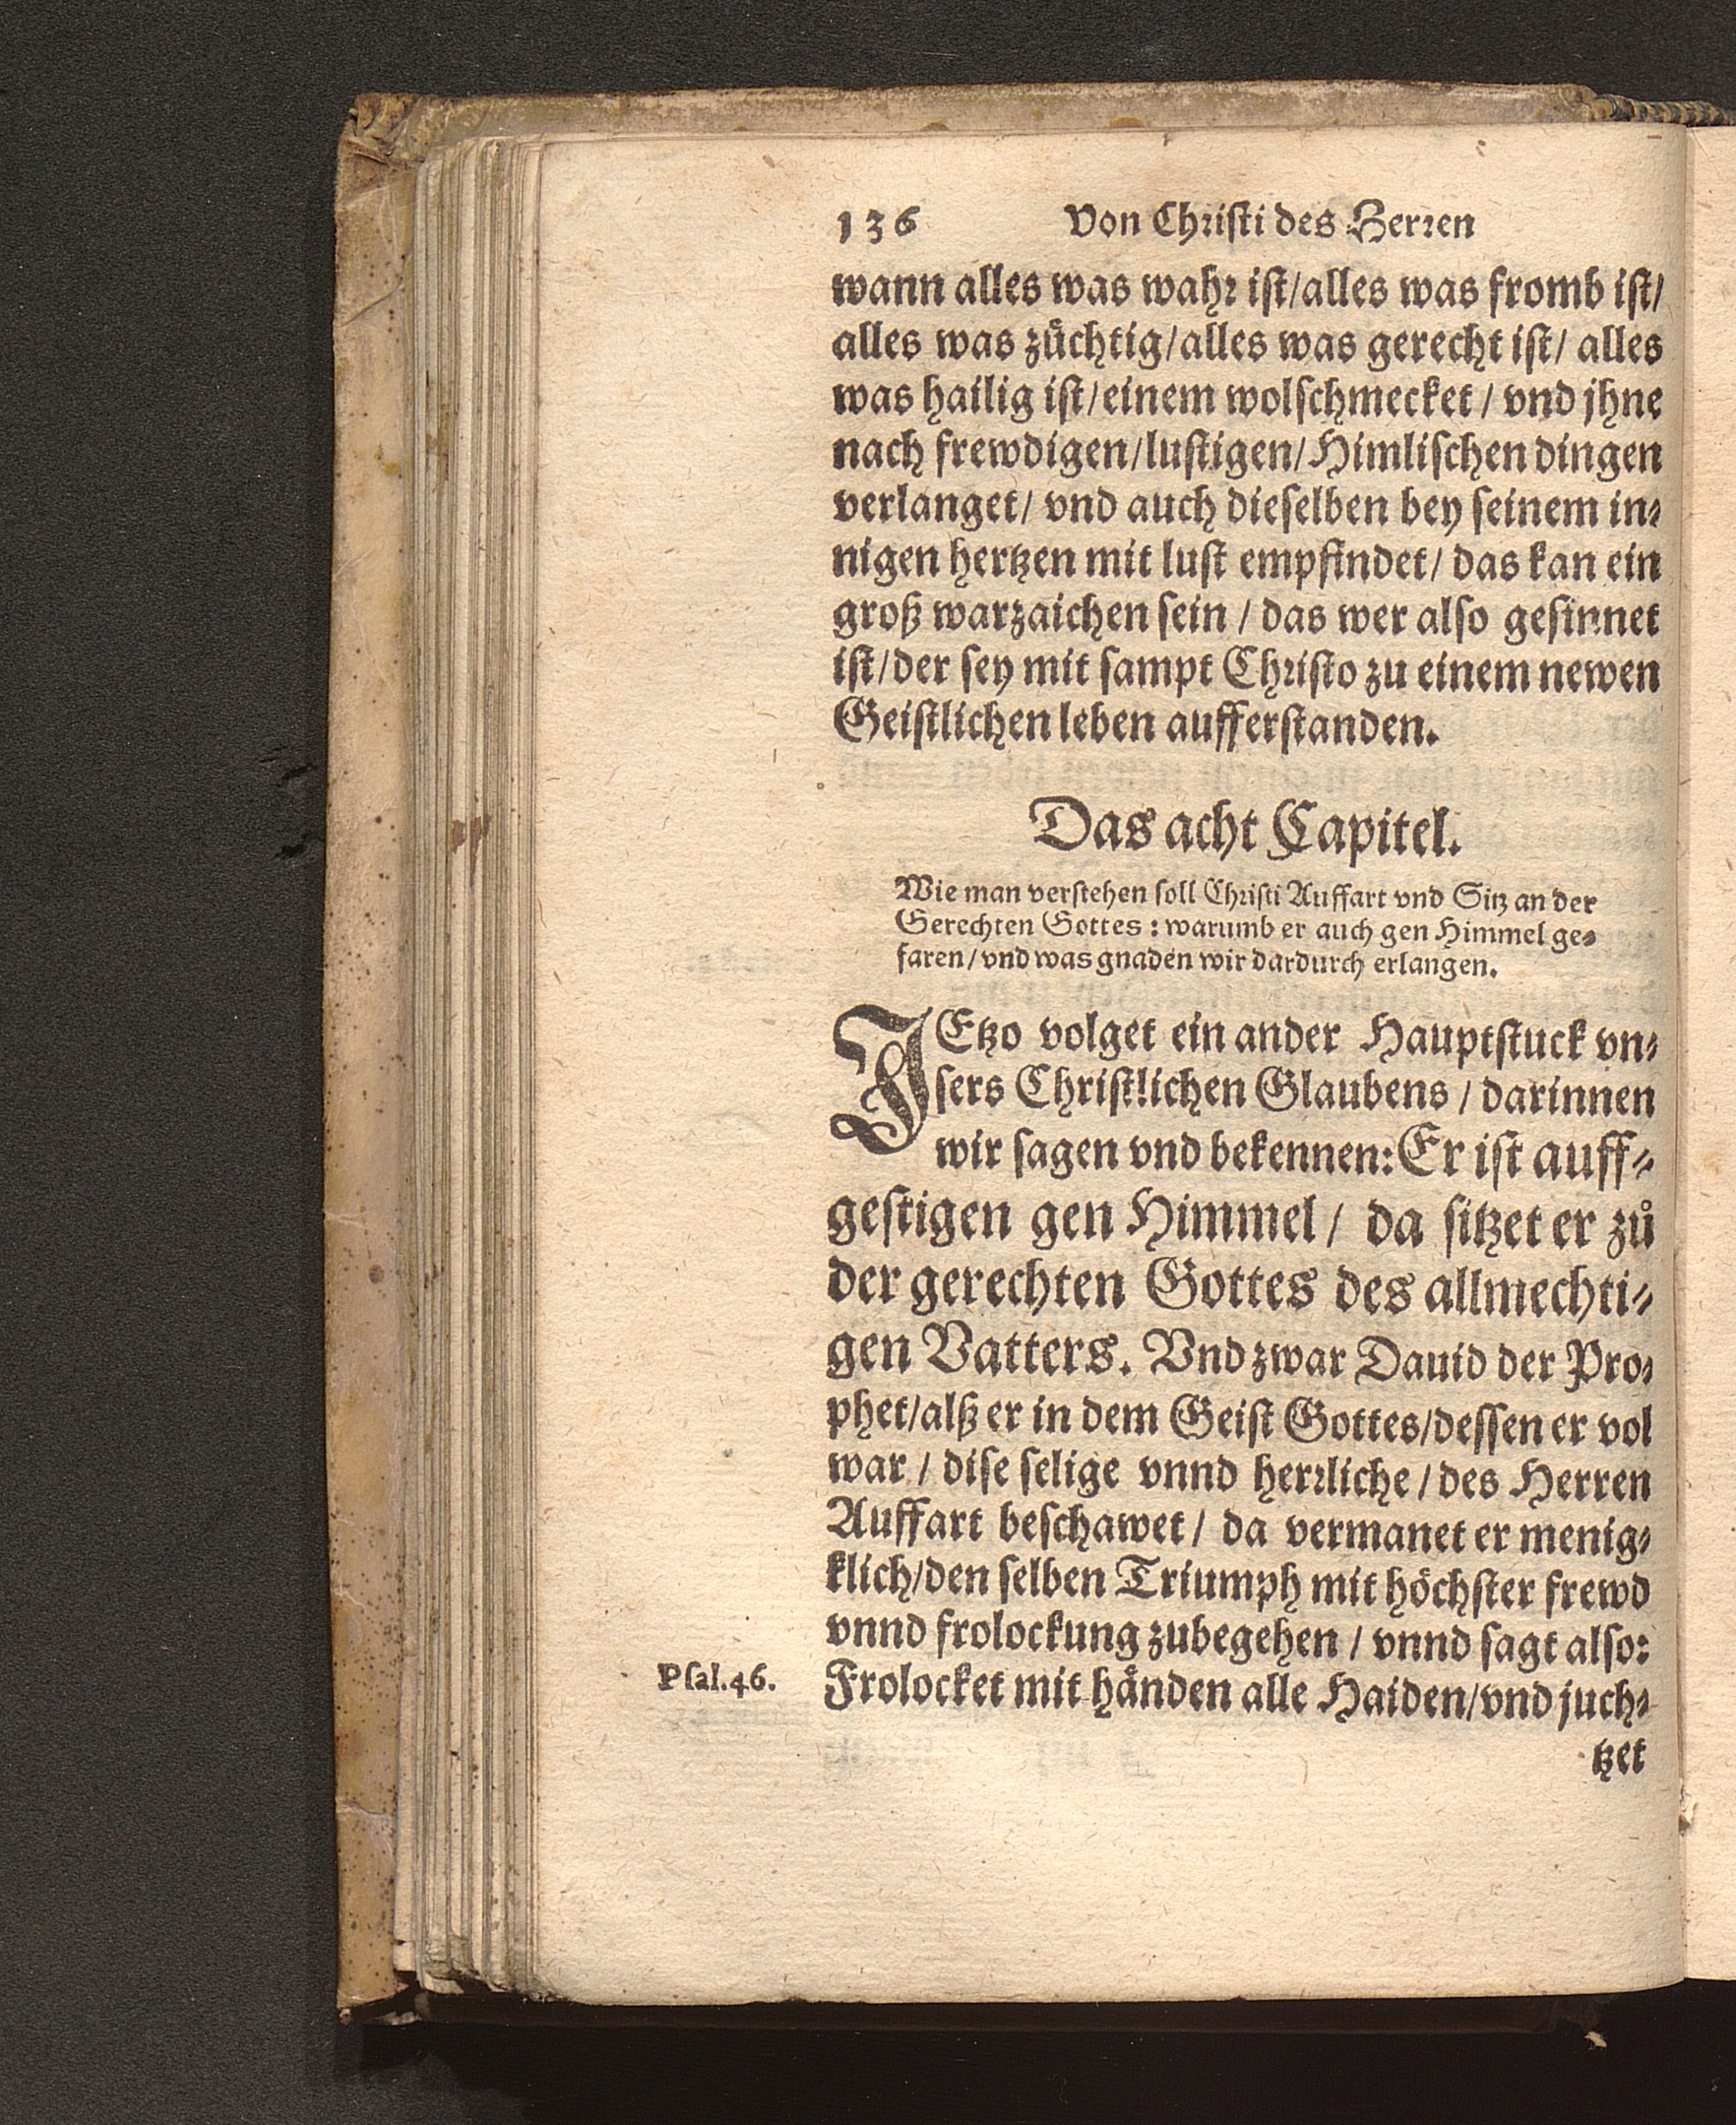 136 Von Christi des Herren
wann alles was wahr ist/alles was fromb ist/
alles was züchtig/alles was gerecht ist/ alles
was hailig ist/einem wolschmecket / vnd jhne
nach frewdigen/lustigen/Himlischen dingen
verlanget/ vnd auch dieselben bey seinem in⸗
nigen hertzen mit lust empfindet/ das kan ein
groß warzaichen sein / das wer also gesinnet
ist/der sey mit sampt Christo zu einem newen
Geistlichen leben aufferstanden.
Das acht Capitel.
Wie man verstehen soll Christi Auffart vnd Sitz an der
Gerechten Gottes : warumb er auch gen Himmel ge⸗
faren/vnd was gnaden wir dardurch erlangen.
JEtzo volget ein ander Hauptstuck vn⸗
sers Christlichen Glaubens / darinnen
wir sagen vnd bekennen: Er ist auff⸗
gestigen gen Himmel / da sitzet er zů
der gerechten Gottes des allmechti⸗
gen Vatters. Vnd zwar Dauid der Pro⸗
phet/alß er in dem Geist Gottes/dessen er vol
war / dise selige vnnd herrliche / des Herren
Auffart beschawet / da vermanet er menig⸗
klich/den selben Triumph mit höchster frewd
vnnd frolockung zubegehen / vnnd sagt also:
Psal.46. Frolocket mit händen alle Haiden/vnd juch⸗
tzet